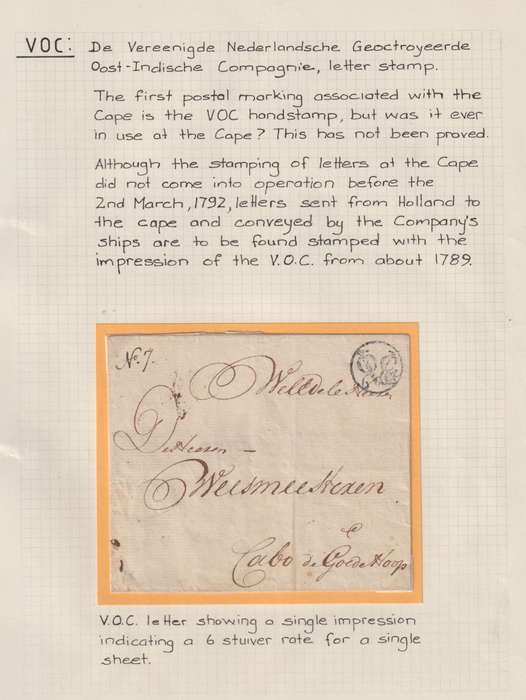 VOC: De Vereenigde Nederlandsche Geoctroyeerde
Oost-Indische Compagnie, letter stamp.
The first postal marking associated with the
Cape is the VOC handstamp, but was it ever
in use at the Cape? This has not been proved.
Although the stamping of letters at the Cape
did not come into operation before the
2nd March, 1792, letters sent from Holland to
the cape and conveyed by the Company's
ships are to be found stamped with the
impression of the V.O.C. from about 1789.
No. 7.
WelEdele
De Heeren
Weesmeesteren
Cabo de Goede Hoop
V.O.C. letter showing a single impression
indicating a 6 stuiver rate for a single
sheet.